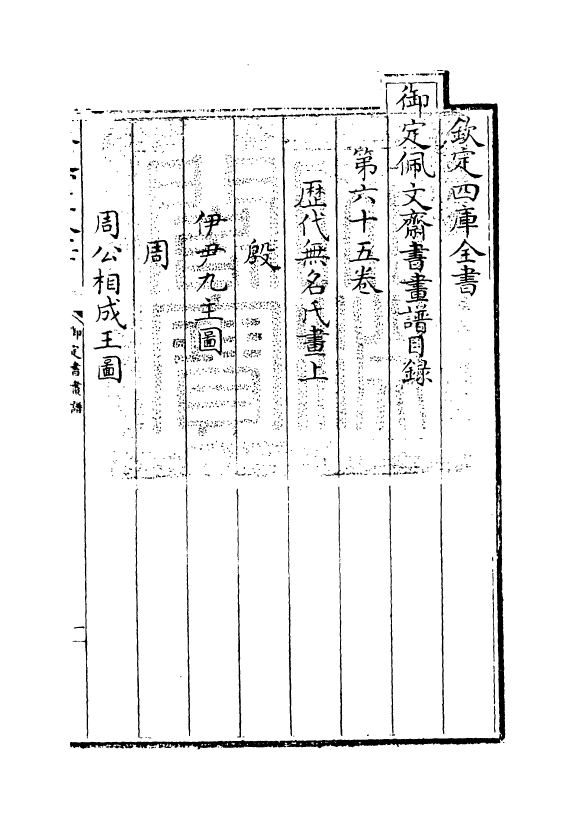 欽定四庫全書
御定佩文齋書畫譜目錄
第六十五卷
歷代無名氏畫上
殷
伊尹九主圖
周
周公相成王圖
御定書畫譜
一